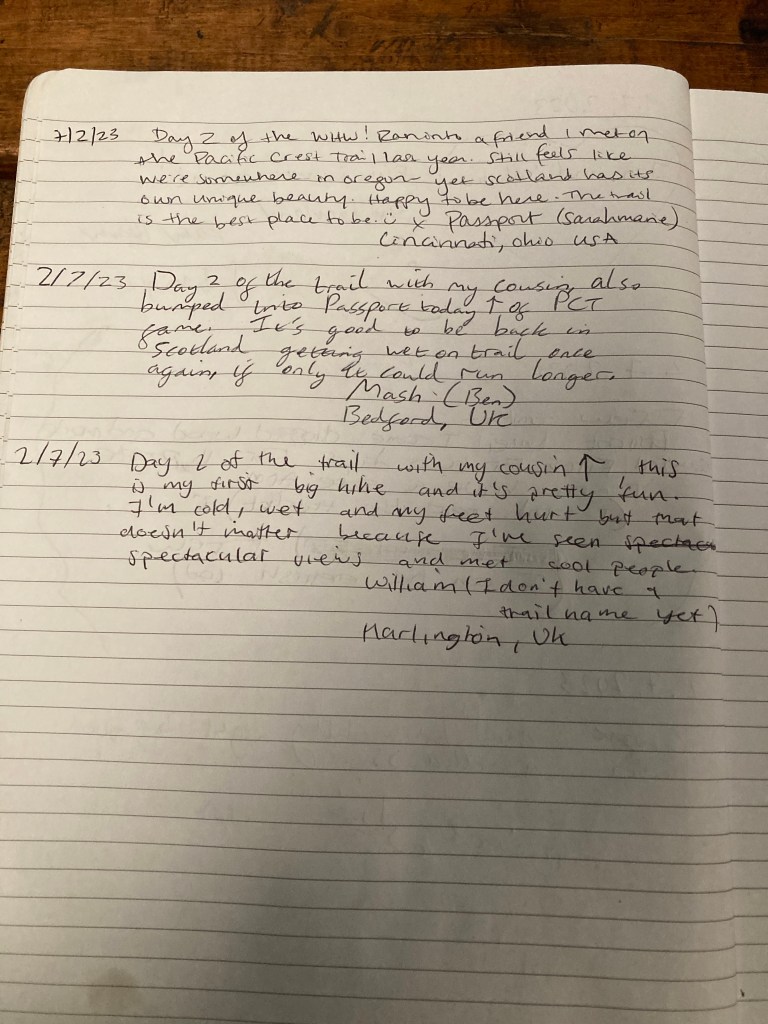 7/2/23 Day 2 of the WHW! Ran into a friend I met on
the Pacific Crest Trail last year. Still feels like
we're somewhere in oregon - yet scotland has its
own unique beauty. Happy to be here. The trail
is the best place to be. ü x Passport (Sarahmarie)
Cincinnati, Ohio USA
2/7/23 Day 2 of the trail with my cousin, also
bumped into Passport today ↑ of PCT
fame. It's good to be back in
Scotland getting wet on trail once
again, if only it could run longer.
Mash (Ben)
Bedford, UK
2/7/23 Day 2 of the trail with my cousin ↑, this
is my first big hike and it's pretty fun.
I'm cold, wet and my feet hurt but that
doesn't matter because I've seen spectac
spectacular views and met cool people.
William (I don't have a
trail name yet)
Harlington, UK